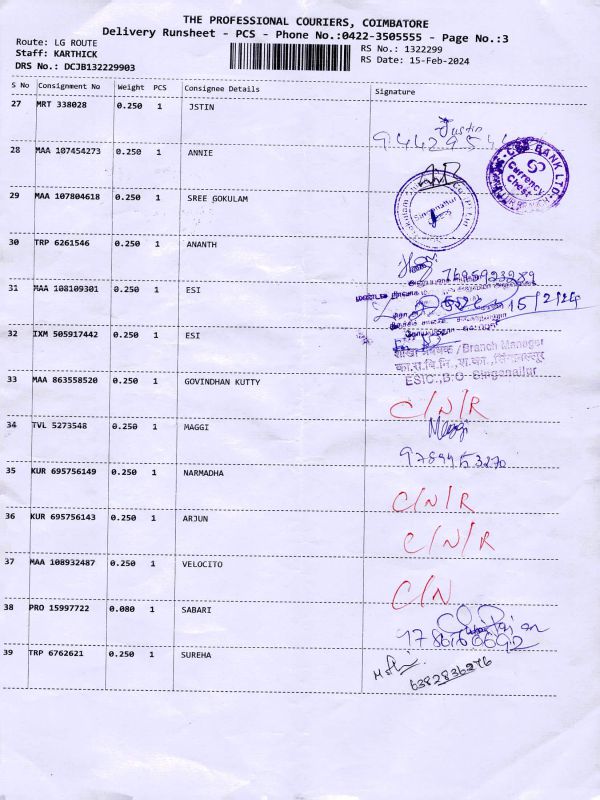 THE PROFESSIONAL COURIERS, COIMBATORE
Delivery Runsheet - PCS - Phone No.:0422-3505555 - Page No.:3
Route: LG ROUTE
Staff: KARTHICK
DRS No.: DCJB132229903
RS No.: 1322299
RS Date: 15-Feb-2024
S No Consignment No Weight PCS Consignee Details Signature
27 MRT 338028 0.250 1 JSTIN
Justin
28 MAA 107454273 0.250 1 ANNIE
BANK LTD
Currency
Chest
29 MAA 107804618 0.250 1 SREE GOKULAM
Singanallur
30 TRP 6261546 0.250 1 ANANTH
7695923289
31 MAA 108109301 0.250 1 ESI
15/2/24
32 IXM 505917442 0.250 1 ESI
शाखा प्रबंधक /Branch Manager
ESIC.,B.O Singanallur
33 MAA 863558520 0.250 1 GOVINDHAN KUTTY
C/N/R
34 TVL 5273548 0.250 1 MAGGI
Maggi
9789453270
35 KUR 695756149 0.250 1 NARMADHA
C/N/R
36 KUR 695756143 0.250 1 ARJUN
C/N/R
37 MAA 108932487 0.250 1 VELOCITO
C/N
38 PRO 15997722 0.080 1 SABARI
39 TRP 6762621 0.250 1 SUREHA
6382836276